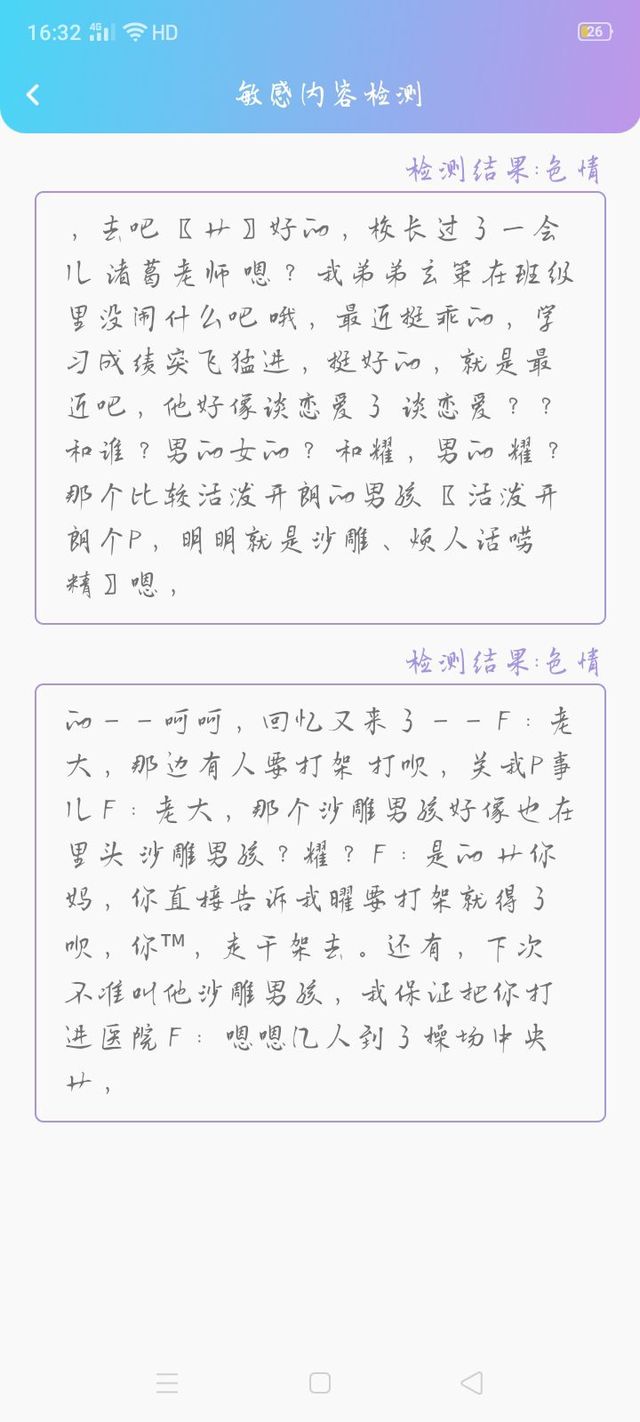 16:32 4G HD 26
敏感内容检测
检测结果:色情
，去吧〖艹〗好的，校长过了一会
儿 诸葛老师 嗯？我弟弟玄策在班级
里没闹什么吧 哦，最近挺乖的，学
习成绩突飞猛进，挺好的，就是最
近吧，他好像谈恋爱了 谈恋爱？？
和谁？男的女的？和耀，男的 耀？
那个比较活泼开朗的男孩〖活泼开
朗个P，明明就是沙雕、烦人话唠
精〗嗯，
检测结果:色情
的－－呵呵，回忆又来了－－F：老
大，那边有人要打架 打呗，关我P事
儿 F：老大，那个沙雕男孩好像也在
里头 沙雕男孩？耀？F：是的 艹你
妈，你直接告诉我曜要打架就得了
呗，你™，走干架去。还有，下次
不准叫他沙雕男孩，我保证把你打
进医院 F：嗯嗯几人到了操场中央
艹，